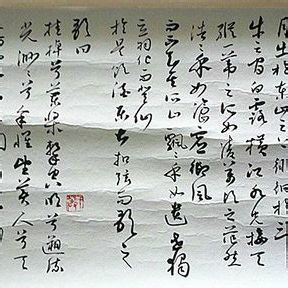 月出於東山之上徘徊於斗
牛之間白露橫江水光接天
縱一葦之所如凌萬頃之茫然
浩々乎如馮虛御風
而不知其所止飄々乎如遺世獨
立羽化而登仙
於是飲酒樂甚扣舷而歌之
歌曰
桂棹兮蘭槳擊空明兮溯流
光渺々兮予懷望美人兮天